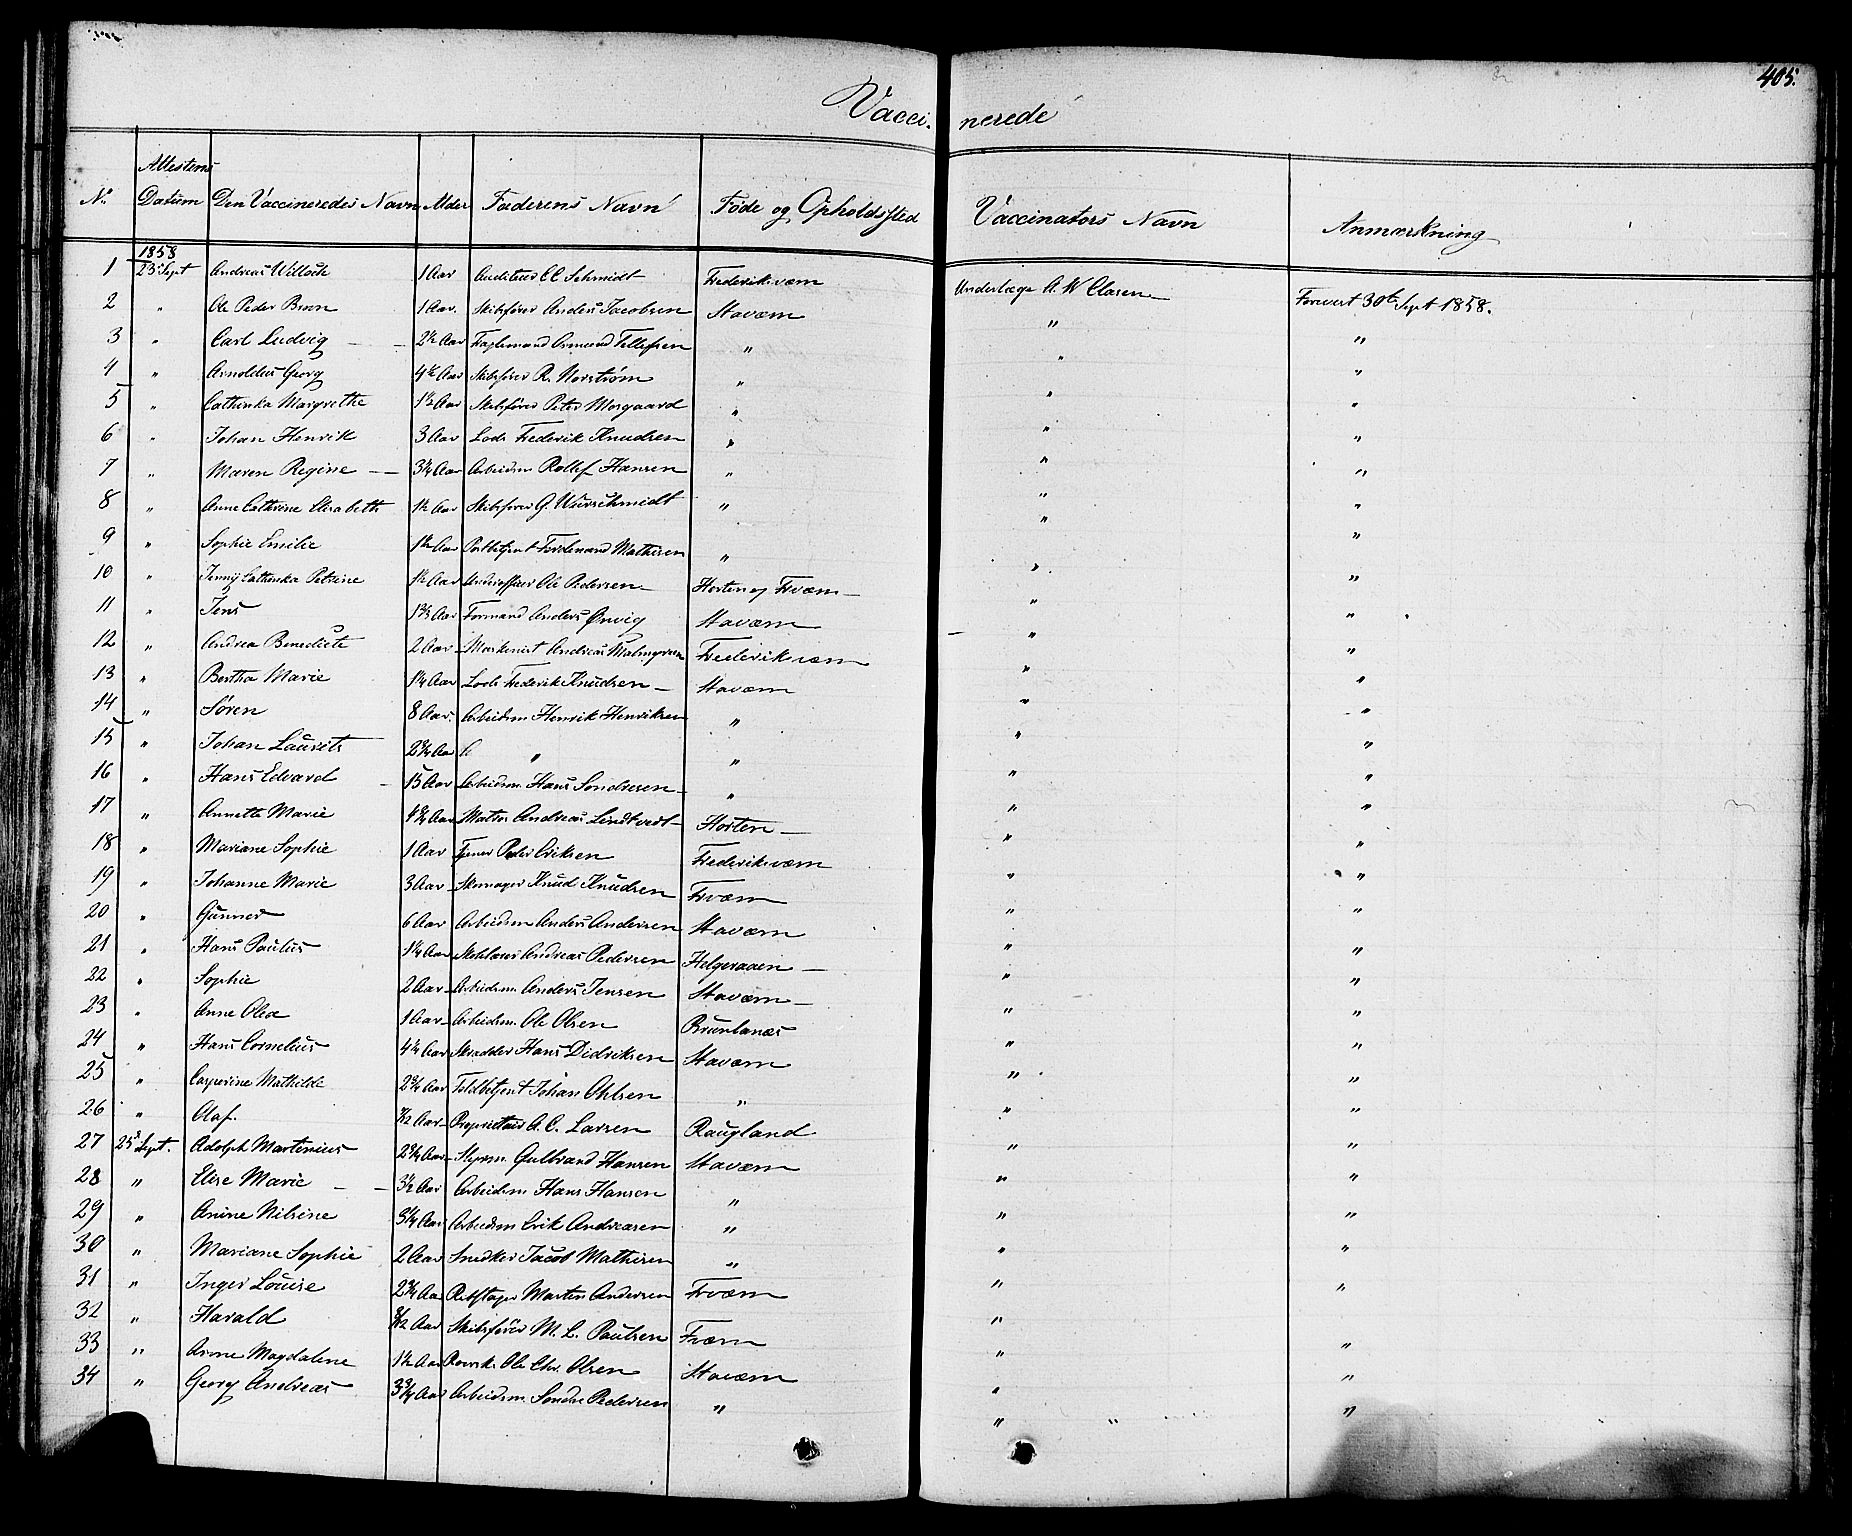 405.
Vaccinerede
No. Attestens Datum Den Vaccineredes Navn Alder Faderens Navn Føde og Opholdssted Vaccinators Navn Anmærkning
1858
1 23d Sept Andreas Willoch 1 Aar Auditeur CC Schmidt Frederiksværn Underlæge A. W Clasen Forevist 30te Sept 1858.
2 " Ole Peder Brun 1 Aar. Skibsfører Anders Jacobsen Staværn " "
3 " Carl Ludvig 2½ Aar Tellefsen " " "
4 " Arnoldus Georg 4½ Aar Skibsfører R. Norstrøm " " "
5 " Cathinka Margrethe 1½ Aar Skibsfører Peter Morgaard " " "
6 " Johan Henrik 3 Aar Lods Frederik Knudsen " " "
7 " Maren Regine 3¼ Aar Arbeidsm Rollef Hansen " " "
8 " Anne Cathrine Elisabeth 1½ Aar Skibsfører G. Wurschmidt " " "
9 " Sophie Emilie 1½ Aar Ferdinand Mathisen " " "
10 " Jenny Cathinka Petrine 1½ Aar Underofficer Ole Pedersen Horten og Fværn " "
11 " Jens 1¾ Aar Formand Anders Ørvig Staværn " "
12 " Andrea Benedicte 2 Aar Maskinist Andreas Frederiksværn " "
13 " Bertha Marie 1¼ Aar Lods Frederik Knudsen Staværn " "
14 " Søren 8 Aar. Arbeidsm Henrik Henriksen " " "
15 " Johan Laurits 2¾ Aar " " " "
16 " Hans Edvard 15 Aar Arbeidsm. Hans Sondresen " " "
17 " Annette Marie 4¾ Aar Matros Andreas Lindtvedt Horten " "
18 " Mariane Sophie 1 Aar Tjener Peder Eriksen Frederiksværn " "
19 " Johanne Marie 3 Aar Skomager Knud Knudsen Fværn " "
20 " Gunner 6 Aar Arbeidsm Anders Andersen Staværn " "
21 " Hans Paulus 1¼ Aar Andreas Pedersen Helgeraaen " "
22 " Sophie 2 Aar Arbeidsm. Anders Jensen Staværn " "
23 " Anne Olea 1 Aar Arbeidsm. Ole Olsen Brunlanæs " "
24 " Hans Cornelius 4¼ Aar Skradder Hans Didriksen Staværn " "
25 " Casperine Mathilde 2¾ Aar Toldbetjent Johan Ohlsen " " "
26 " Olaf. Aar Proprietair A. C. Larsen Raugland " "
27 25d Sept. Adolph Martinius 2¾ Aar Styrm. Gulbrand Hansen Staværn " "
28 " Elise Marie 3½ Aar Arbeidsm Hans Hansen " " "
29 " Anine Nilsine 3¼ Aar Arbeidsm Erik Andreasen " " "
30 " Mariane Sophie 2 Aar Snedker Jacob Mathisen " " "
31 " Inger Louise 2¾ Aar Rebslager Morten Andersen Fværn " "
32 " Harald Aar Skibsfører M. L. Paulsen Fværn " "
33 " Anne Magdalene 1½ Aar Ole Chr. Olsen Staværn " "
34 " Georg Andreas 3¾ Aar Arbeidsm. Sondre Pedersen " " "